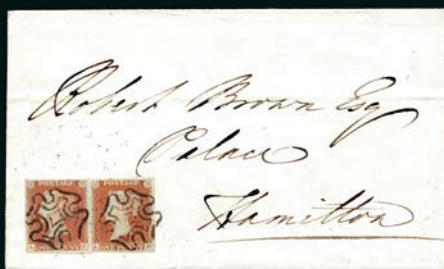 Robert Brown Esq
Palace
Hamilton
POSTAGE POSTAGE